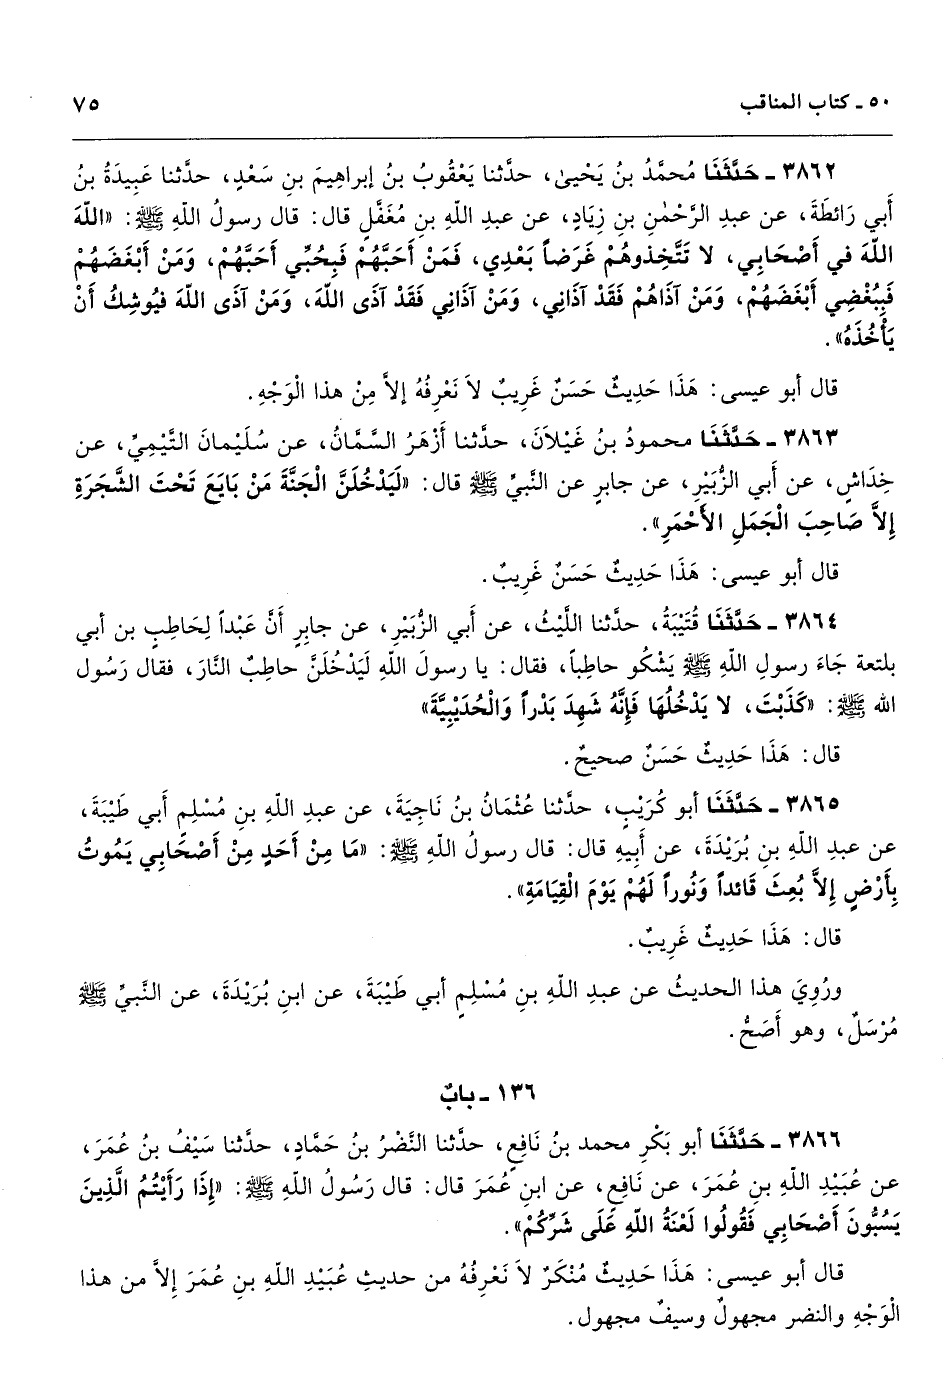 ٥٠ ـ كتاب المناقب
٧٥
٣٨٦٢ ـ حَدَّثَنَا مُحمَّدُ بنُ يَحْيىٰ، حدَّثنا يَعْقُوبُ بنُ إبراهِيمَ بنِ سَعْدٍ، حدَّثنا عَبِيدَةُ بنُ
أبي رَائطَةَ، عن عبدِ الرَّحْمٰنِ بنِ زِيَادٍ، عن عبدِ اللهِ بنِ مُغَفَّلٍ قال: قال رسولُ اللهِ ﷺ: «اللهَ
اللهَ في أَصْحَابِي، لا تَتَّخِذوهُمْ غَرَضاً بَعْدِي، فَمَنْ أَحَبَّهُمْ فَبِحُبِّي أَحَبَّهُمْ، وَمَنْ أَبْغَضَهُمْ
فَبِبُغْضِي أَبْغَضَهُمْ، وَمَنْ آذَاهُمْ فَقَدْ آذَانِي، وَمَنْ آذَانِي فَقَدْ آذَى اللهَ، وَمَنْ آذَى اللهَ فَيُوشِكُ أَنْ
يَأْخُذَهُ».
قال أبو عيسى: هَذَا حَدِيثٌ حَسَنٌ غَرِيبٌ لاَ نَعْرِفُهُ إلاَّ مِنْ هذا الْوَجْهِ.
٣٨٦٣ ـ حَدَّثَنَا محمودُ بنُ غَيْلاَنَ، حدَّثنا أَزْهَرُ السَّمَّانُ، عن سُلَيْمانَ التَّيْمِيِّ، عن
خِدَاشٍ، عن أبي الزُّبَيْرِ، عن جابرٍ عن النَّبيِّ ﷺ قال: «لَيَدْخُلَنَّ الْجَنَّةَ مَنْ بَايَعَ تَحْتَ الشَّجَرَةِ
إلاَّ صَاحِبَ الْجَمَلِ الأَحْمَرِ».
قال أبو عيسى: هَذَا حَدِيثٌ حَسَنٌ غَرِيبٌ.
٣٨٦٤ ـ حَدَّثَنَا قُتَيْبَةُ، حدَّثنا اللَّيْثُ، عن أَبي الزُّبَيْرِ، عن جابرٍ أَنَّ عَبْداً لِحَاطِبِ بن أبي
بلتعة جَاءَ رسولِ اللهِ ﷺ يَشْكُو حاطِباً، فقال: يا رسولَ اللهِ لَيَدْخُلَنَّ حاطِبٌ النَّارَ، فقال رَسُول
الله ﷺ: «كَذَبْتَ، لا يَدْخُلُهَا فَإنَّهُ شَهِدَ بَدْراً وَالْحُدَيْبِيَّةَ»
قال: هَذَا حَدِيثٌ حَسَنٌ صحيحٌ.
٣٨٦٥ ـ حَدَّثَنَا أبو كُرَيْبٍ، حدَّثنا عُثْمَانُ بنُ نَاجِيَةَ، عن عبدِ اللهِ بنِ مُسْلِمٍ أَبي طَيْبَةَ،
عن عبدِ اللهِ بنِ بُرَيْدَةَ، عن أَبِيهِ قال: قال رسولُ اللهِ ﷺ: «مَا مِنْ أَحَدٍ مِنْ أَصْحَابِي يَمُوتُ
بِأَرْضٍ إلاَّ بُعِثَ قَائداً وَنُوراً لَهُمْ يَوْمَ الْقِيَامَةِ».
قال: هَذَا حَدِيثٌ غَرِيبٌ.
ورُوِيَ هذا الحديثُ عن عبدِ اللهِ بنِ مُسْلِمٍ أبي طَيْبَةَ، عن ابنِ بُرَيْدَةَ، عن النَّبيِّ ﷺ
مُرْسَلٌ، وهو أَصَحُّ.
١٣٦ ـ بابٌ
٣٨٦٦ ـ حَدَّثَنَا أبو بَكْرٍ محمد بنُ نَافِعٍ، حدَّثنا النَّضْرُ بنُ حَمَّادٍ، حدَّثنا سَيْفُ بنُ عُمَرَ،
عن عُبَيْدِ اللهِ بنِ عُمَرَ، عن نَافِعٍ، عن ابنِ عُمَرَ قال: قال رَسُولُ اللهِ ﷺ: «إِذَا رَأَيْتُمُ الَّذِينَ
يَسُبُّونَ أَصْحَابِي فَقُولُوا لَعْنَةُ اللهِ عَلَى شَرِّكُمْ».
قال أبو عيسى: هَذَا حَدِيثٌ مُنْكَرٌ لاَ نَعْرِفُهُ من حديثِ عُبَيْدِ اللهِ بنِ عُمَرَ إلاَّ من هذا
الْوَجْهِ والنضر مجهولٌ وسيفٌ مجهول.